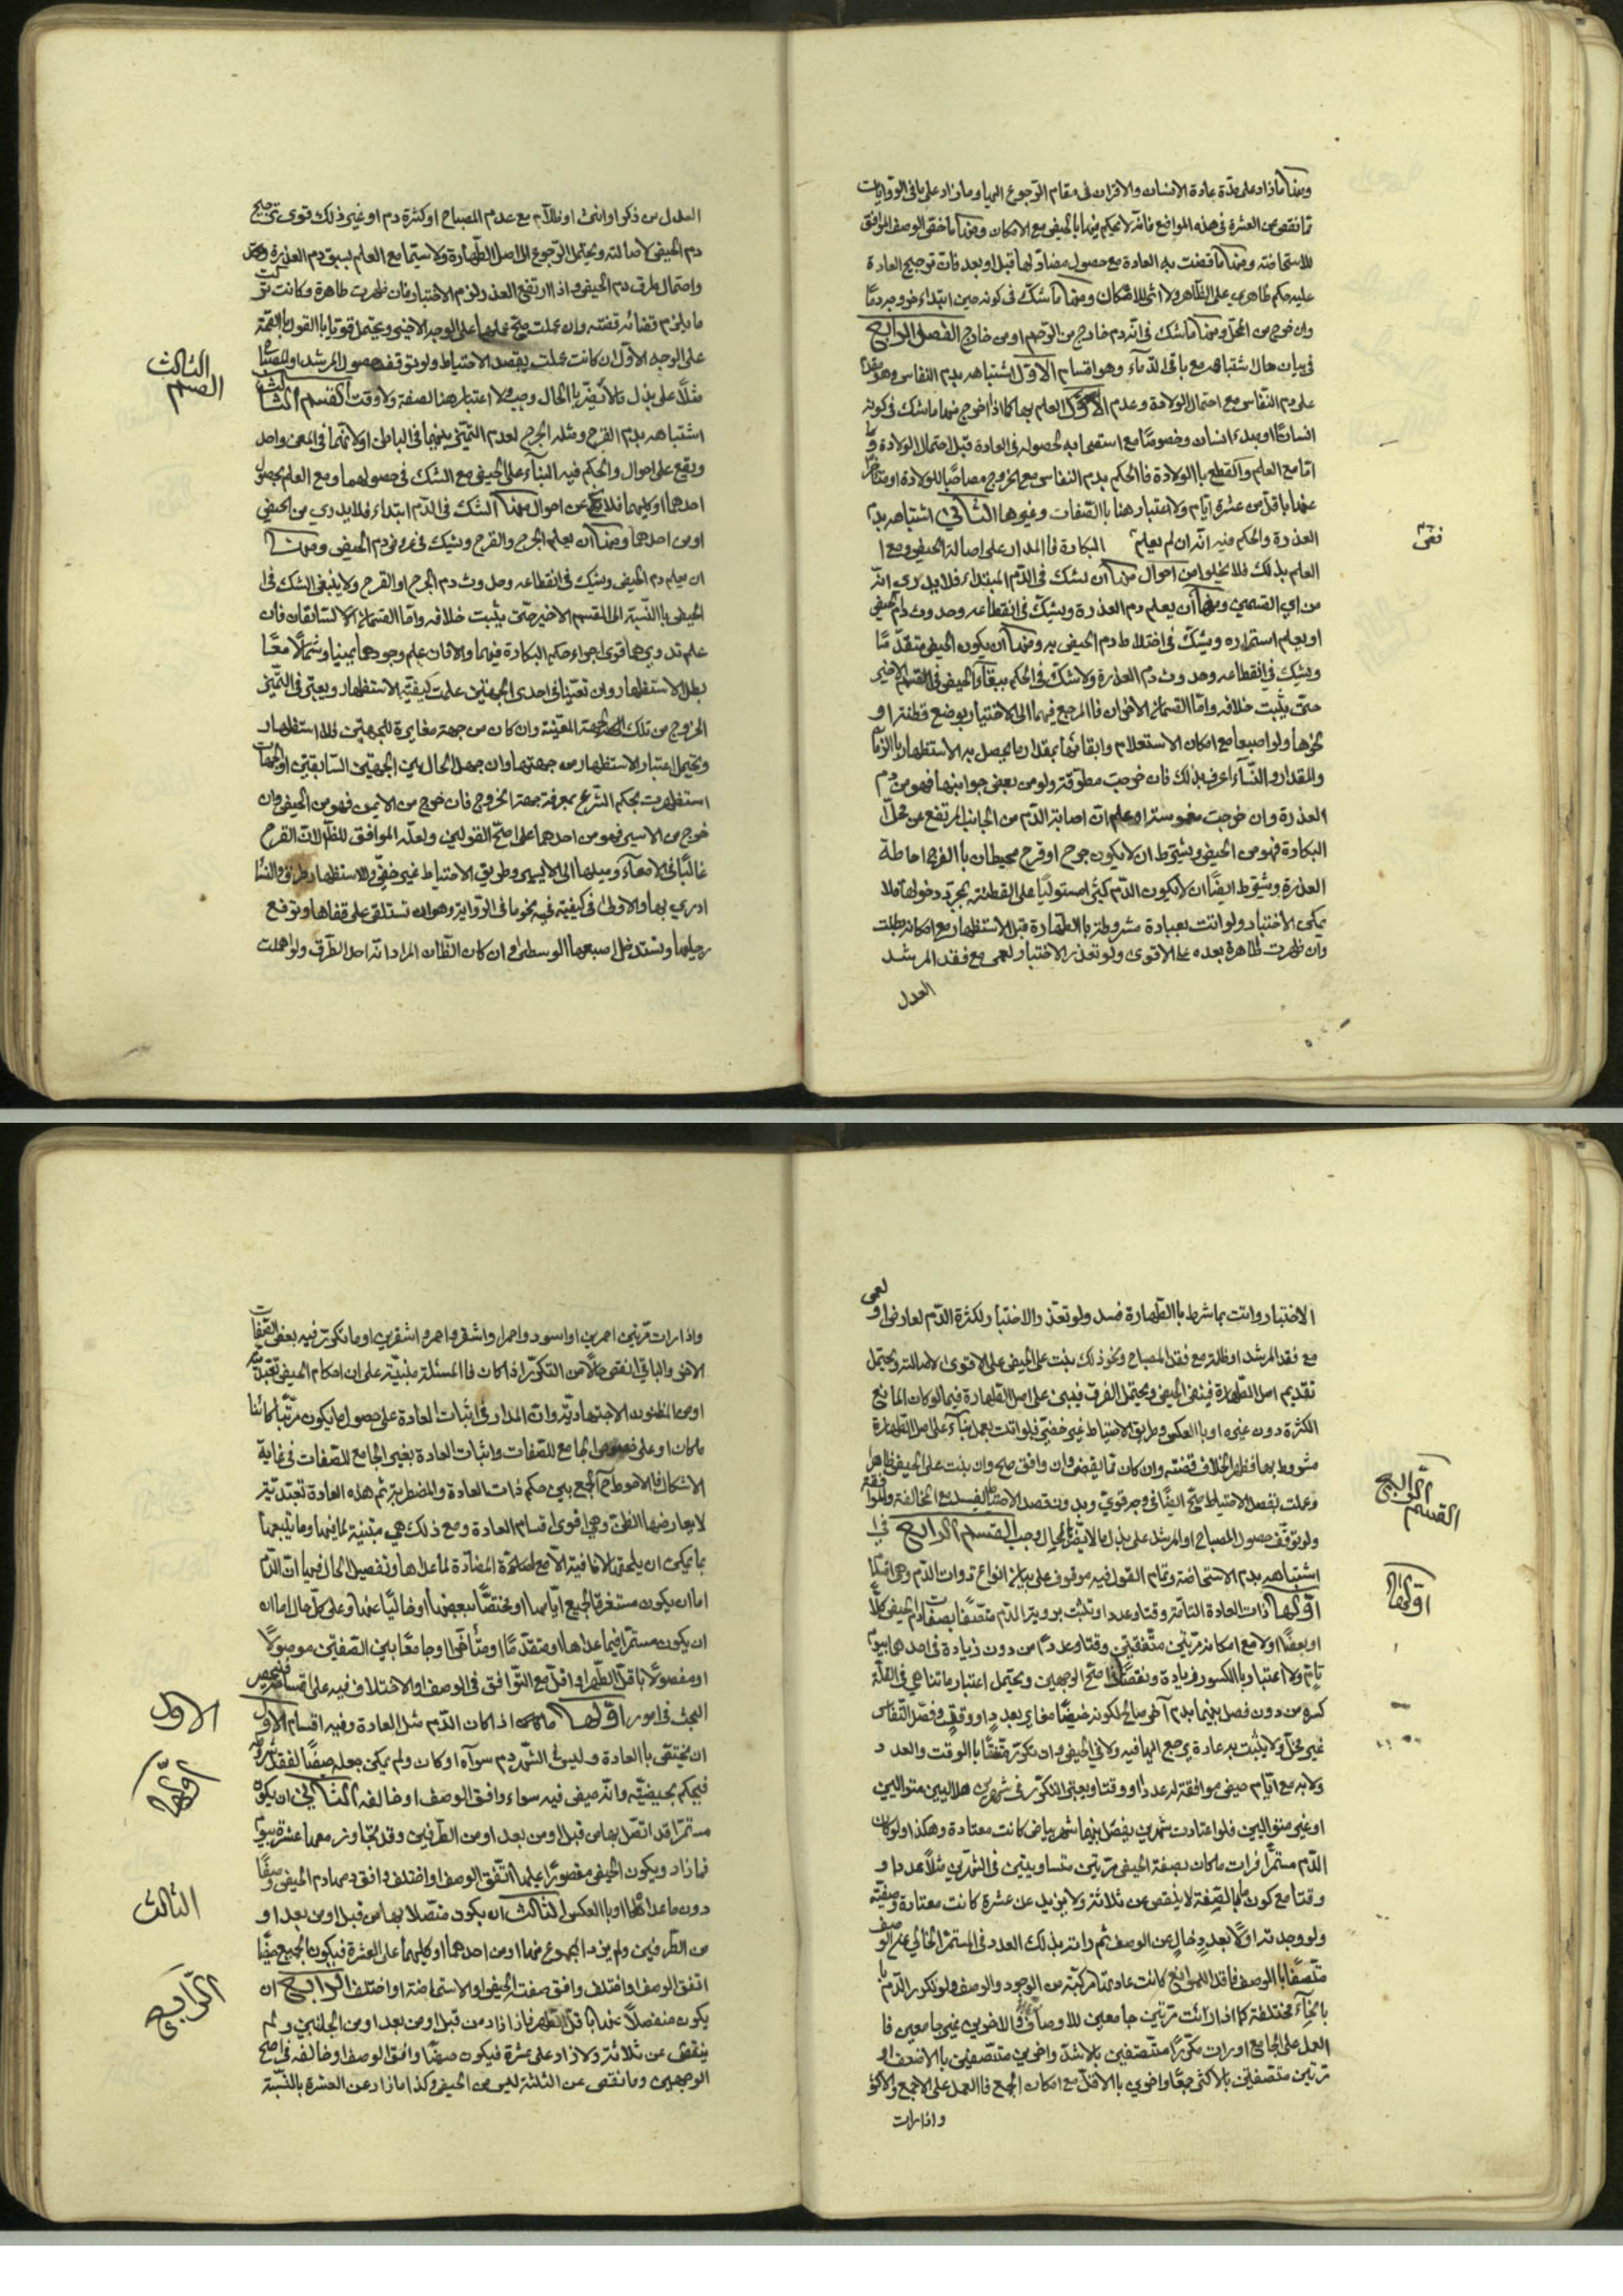 ومنها ما زاد على مدة عادة الانسان والاقران فى مقام الرجوع اليها وما زاد على ما فى الروايات
مما نقص عن العشرة فى هذه المواضع فانه لا يحكم فيها بالحيض مع الامكان ومنها ما خفى الوصف الموافق
للاستحاضة ومنها ما قضت به العادة مع حصول مضاد لها قبل او بعد فان ترجيح العادة
عليه حكم ظاهرى على الظاهر ولا اشكال ومنها ما شك فى كونه حين ابتداء خروجه دما
وان خرج من المحل ومنها ما شك فى انه دم خارج من الرحم او من خارج الفصل الرابع
فى بيان حال اشتباهه مع باقى الدماء وهو اقسام الاول اشتباهه بدم النفاس وهو
على دم النفاس مع احتمال الولادة وعدم العلم بها كما اذا خرج منها ما شك فى كونه
انسانا او مبدء انسان وخصوصا مع استصحابه لحصوله فى العادة قبل احتمال الولادة و
اما مع العلم والقطع بالولادة فالحكم بدم النفاس مع الخروج مصاحبا للولادة او متاخرا
عنها باقل من عشرة ايام ولا اعتبار هنا بالصفات وغيرها الثانى اشتباهه بدم
العذرة والحكم فيه انه ان لم يعلم البكارة فالمدار على اصالة الحيض ومع
العلم بذلك فلا يخلو من احوال منها ان يشك فى الدم المبتداء فلا يدرى انه
من اى القسمين ومنها ان يعلم دم العذرة ويشك فى انقطاعه وحدوث دم الحيض
او يعلم استمراره ويشك فى اختلاط دم الحيض به ومنها ان يكون الحيض متقدما
ويشك فى انقطاعه وحدوث دم العذرة ولا شك فى الحكم ببقاء الحيض فى القسم الاخير
حتى يثبت خلافه واما القسمان الاخران فالمرجع فيهما الى الاختبار بوضع قطنة او
نحوها ولو اصبعا مع امكان الاستعلام وابقائها بمقدار ما يحصل به الاستظهار بالزمان
والمقدار والنساء اعرف بذلك فان خرجت مطوقة ولو من بعض جوانبها فهو من دم
العذرة وان خرجت مغموسة او علم ان اصابة الدم من الجانب المرتفع عن محل
البكارة فهو من الحيض ويشترط ان لا يكون جرح او قرح محيطان بالفرج احاطة
العذرة ويشترط ايضا ان لا يكون الدم كثيرا مستوليا على القطنة بمجرد دخولها فلا
يمكن الاختبار ولو اتت بعبادة مشروطة بالطهارة قبل الاستظهار مع امكانه بطلت
وان ظهرت طاهرة بعده على الاقوى ولو تعذر الاختبار لعمى مع فقد المرشد
العدل
نقى
العدل من ذكر او انثى او ظلام مع عدم المصباح او كثرة دم او غير ذلك قوى ترجيح
دم الحيض لاصالته ويحتمل الرجوع الى اصل الطهارة ولا سيما مع العلم بسبق دم العذرة
واحتمال طرو دم الحيض واذا ارتفع العذر لزم الاختبار فان ظهرت طاهرة وكانت تركت
ما يلزم قضائه قضته وان عملت صح عملها على الوجه الاخير ويحتمل قويا القول بالصحة
على الوجه الاول ان كانت عملت بقصد الاحتياط ولو توقف حصول المرشد او المصباح
مثلا على بذل ما لا يضر بالحال وجب ولا اعتبار هنا لصفة ولا وقت القسم الثالث
اشتباهه بدم القرح ومثله الجرح لعدم التميز بينهما فى الباطن او لانهما فى المعنى واحد
ويقع على احوال والحكم فيه البناء على الحيض مع الشك فى حصولهما ومع العلم بحصول
احدهما او كليهما فلا يخلو عن احوال منها الشك فى الدم ابتداء فلا يدرى من الحيض
او من احدهما ومنها ان يعلم الجرح والقرح ويشك فى عروض دم الحيض ومنها
ان يعلم دم الحيض ويشك فى انقطاعه وحدوث دم الجرح او القرح ولا ينبغى الشك فى
الحيض بالنسبة الى القسم الاخير حتى يثبت خلافه واما القسمان السابقان فان
علم تدويرهما قوى اجراء حكم البكارة فيهما والا فان علم وجودهما يمينا وشمالا معا
بطل الاستظهار وان تعينا فى احدى الجهتين علمت كيفية الاستظهار ويعتبر فى التميز
الخروج من تلك الجهة المعينة وان كان من جهة مغايرة للجهتين فلا استظهار
ويحتمل اعتبار الاستظهار من جهتها وان جهل الحال بين الجهتين السابقتين او الجهات
استظهرت بحكم الشرع بمعرفة جهة الخروج فان خرج من الايمن فهو من الحيض وان
خرج من الايسر فهو من احدهما على اصح القولين ولعله الموافق للظاهر لان القرح
غالبا فى الامعاء وميلها الى الايسر وطريق الاحتياط غير خفى وللاستظهار طرق والنساء
ادرى بها والاولى فى كيفيته نحو ما فى الرواية وهو ان تستلقى على قفاها وترفع
رجليها وتستدخل اصبعها الوسطى وان كان الظان المراد انه احد الطرق ولو اهملت
القسم الثالث
الاختبار واتت بما شرط بالطهارة فسد ولو تعذر الاختبار لكثرة الدم لعارض او لعمى
مع فقد المرشد او ظلمة مع فقد المصباح ونحو ذلك بنت على الحيض على الاقوى لاصالته ويحتمل
تقديم اصل الطهارة فينفى الحيض ويحتمل الفرق فيبنى على اصل الطهارة فيما لو كان المانع
الكثرة دون غيره او بالعكس وطريق الاحتياط غير خفى فلو اتت بعمل بناء على اصل الطهارة
مشروط بها فظهر الخلاف قضته وان كان مما يقضى وان وافق صح وان بنت على الحيض ظاهرا
وعملت بقصد الاحتياط صح ايضا فى وجه قوى وبدون قصد الاحتياط يفسد مع المخالفة والموافقة
ولو توقف حصول المصباح او المرشد على بذل ما لا يضر بالحال وجب القسم الرابع فى
اشتباهه بدم الاستحاضة وتمام القول فيه موقوف على بيان انواع ذوات الدم وهى اقسام
اولها ذات العادة التامة وقتا وعددا وتثبت برؤية الدم متصفا بصفات دم الحيض كلا
او بعضا او لا مع امكانه مرتين متفقتين وقتا وعددا من دون زيادة فى احدهما بيوم
تام ولا اعتبار بالكسور زيادة ونقصا فى اصح الوجهين ويحتمل اعتبار ما تناهى فى القلة
كسره من دون فصل بينهما بدم آخر صالح لكونه حيضا مغاير بعدد او وقت وفصل النفاس
غير مخل ولا يثبت به عادة يرجع اليها فيه ولا فى الحيض وان تكرر متفقا بالوقت والعدد
ولا به مع ايام حيض موافقة له عددا ووقتا ويعتبر التكرر فى شهرين هلاليين متواليين
او غير متواليين فلو اعتادت شهرين يفصل بينهما شهر بياض كانت معتادة وهكذا ولو كان
الدم مستمرا فرات ما كان بصفة الحيض مرتين متساويتين فى الشهرين مثلا عددا و
وقتا مع كون ما بالصفة لا ينقص عن ثلاثة ولا يزيد عن عشرة كانت معتادة وصفية
ولو وجدته اولا بعدد خال عن الوصف ثم راته بذلك العدد فى المستمر الخالى عن الوصف
متصفا بالوصف فاقد الموانع كانت عادتها مركبة من الوجود والوصف ولو تكرر الدم
بانحاء مختلفة كما اذا رات مرتين جامعين للاوصاف والاخريين غير جامعين فا
العمل على الجامع او رات مكررا متصفين بالاشد واخريين متصفين بالاضعف او
مرتين متصفتين بالاكثر جمعا واخرى بالاقل مع امكان الجمع فالعمل على الاجمع والاكثر
واذا رات
القسم الرابع
اولها
واذا رات مرتين احمرين او اسود واحمر او اشقر واحمر او اشقرين او ما تكررت فيه بعض الصفات
الاخر والباقى انقص حالا من التكرر اذا كان فالمسئلة مبنية على ان احكام الحيض تعبدية
او من الظنون الاجتهادية وان المدار فى اثبات العادة على حصول ما يكون مرتبا كائنا
ما كان او على خصوص الجامع للصفات واثبات العادة بغير الجامع للصفات فى غاية
الاشكال فالاحوط ح الجمع بين حكم ذات العادة والمضطربة ثم هذه العادة تعبدية
لا يعارضها الظن وهى اقوى اقسام العادة ومع ذلك هى مبنية لما فيها وما يتبعها
ما يمكن ان يلحق بها لا نافية الا مع المضادة لما عداها وتفصيل الحال فيها ان الدم
اما ان يكون مستغرقا لجميع ايامها او مختصا ببعضها او خاليا عنها وعلى كل حال اما ان
ان يكون مستمرا فيما عداها او متقدما او متأخرا او جامعا بين الصفتين موصولا
او مفصولا باقل الطهر او اقل مع التوافق فى الوصف او الاختلاف فيه على اقسامه فينحصر
البحث فى امور اولها ما اذا كان الدم مثل العادة وفيه اقسام الاول
ان يختص بالعادة وليس فى الشهر دم سواه او كان ولم يمكن جعله حيضا لفقد شرط
فيحكم بحيضيته وانه حيض فيه سواء وافق الوصف او خالفه الثانى ان يكون
مستمرا قد اتصل بها من قبل او من بعد او من الطرفين وقد تجاوز معها عشرة بيوم
فما زاد ويكون الحيض مقصورا عليها اتفق الوصف او اختلف وافق دمها دم الحيض وصفا
دون ما عداها او بالعكس الثالث ان يكون متصلا بها من قبل او من بعد او
من الطرفين ولم يزد المجموع منها او من احدهما او كليهما على العشرة فيكون الجميع حيضا
اتفق الوصف او اختلف وافق صفة الحيض او الاستحاضة او اختلف الرابع ان
يكون منفصلا عنها باقل الطهر فما زاد من قبل او من بعد او من الجانبين ولم
ينقص عن ثلاثة ولا زاد على عشرة فيكون حيضا وافق الوصف او خالفه فى اصح
الوجهين وما نقص عن الثلثة ليس من الحيض وكذا ما زاد عن العشرة بالنسبة
الاول
اولها
الثالث
الرابع